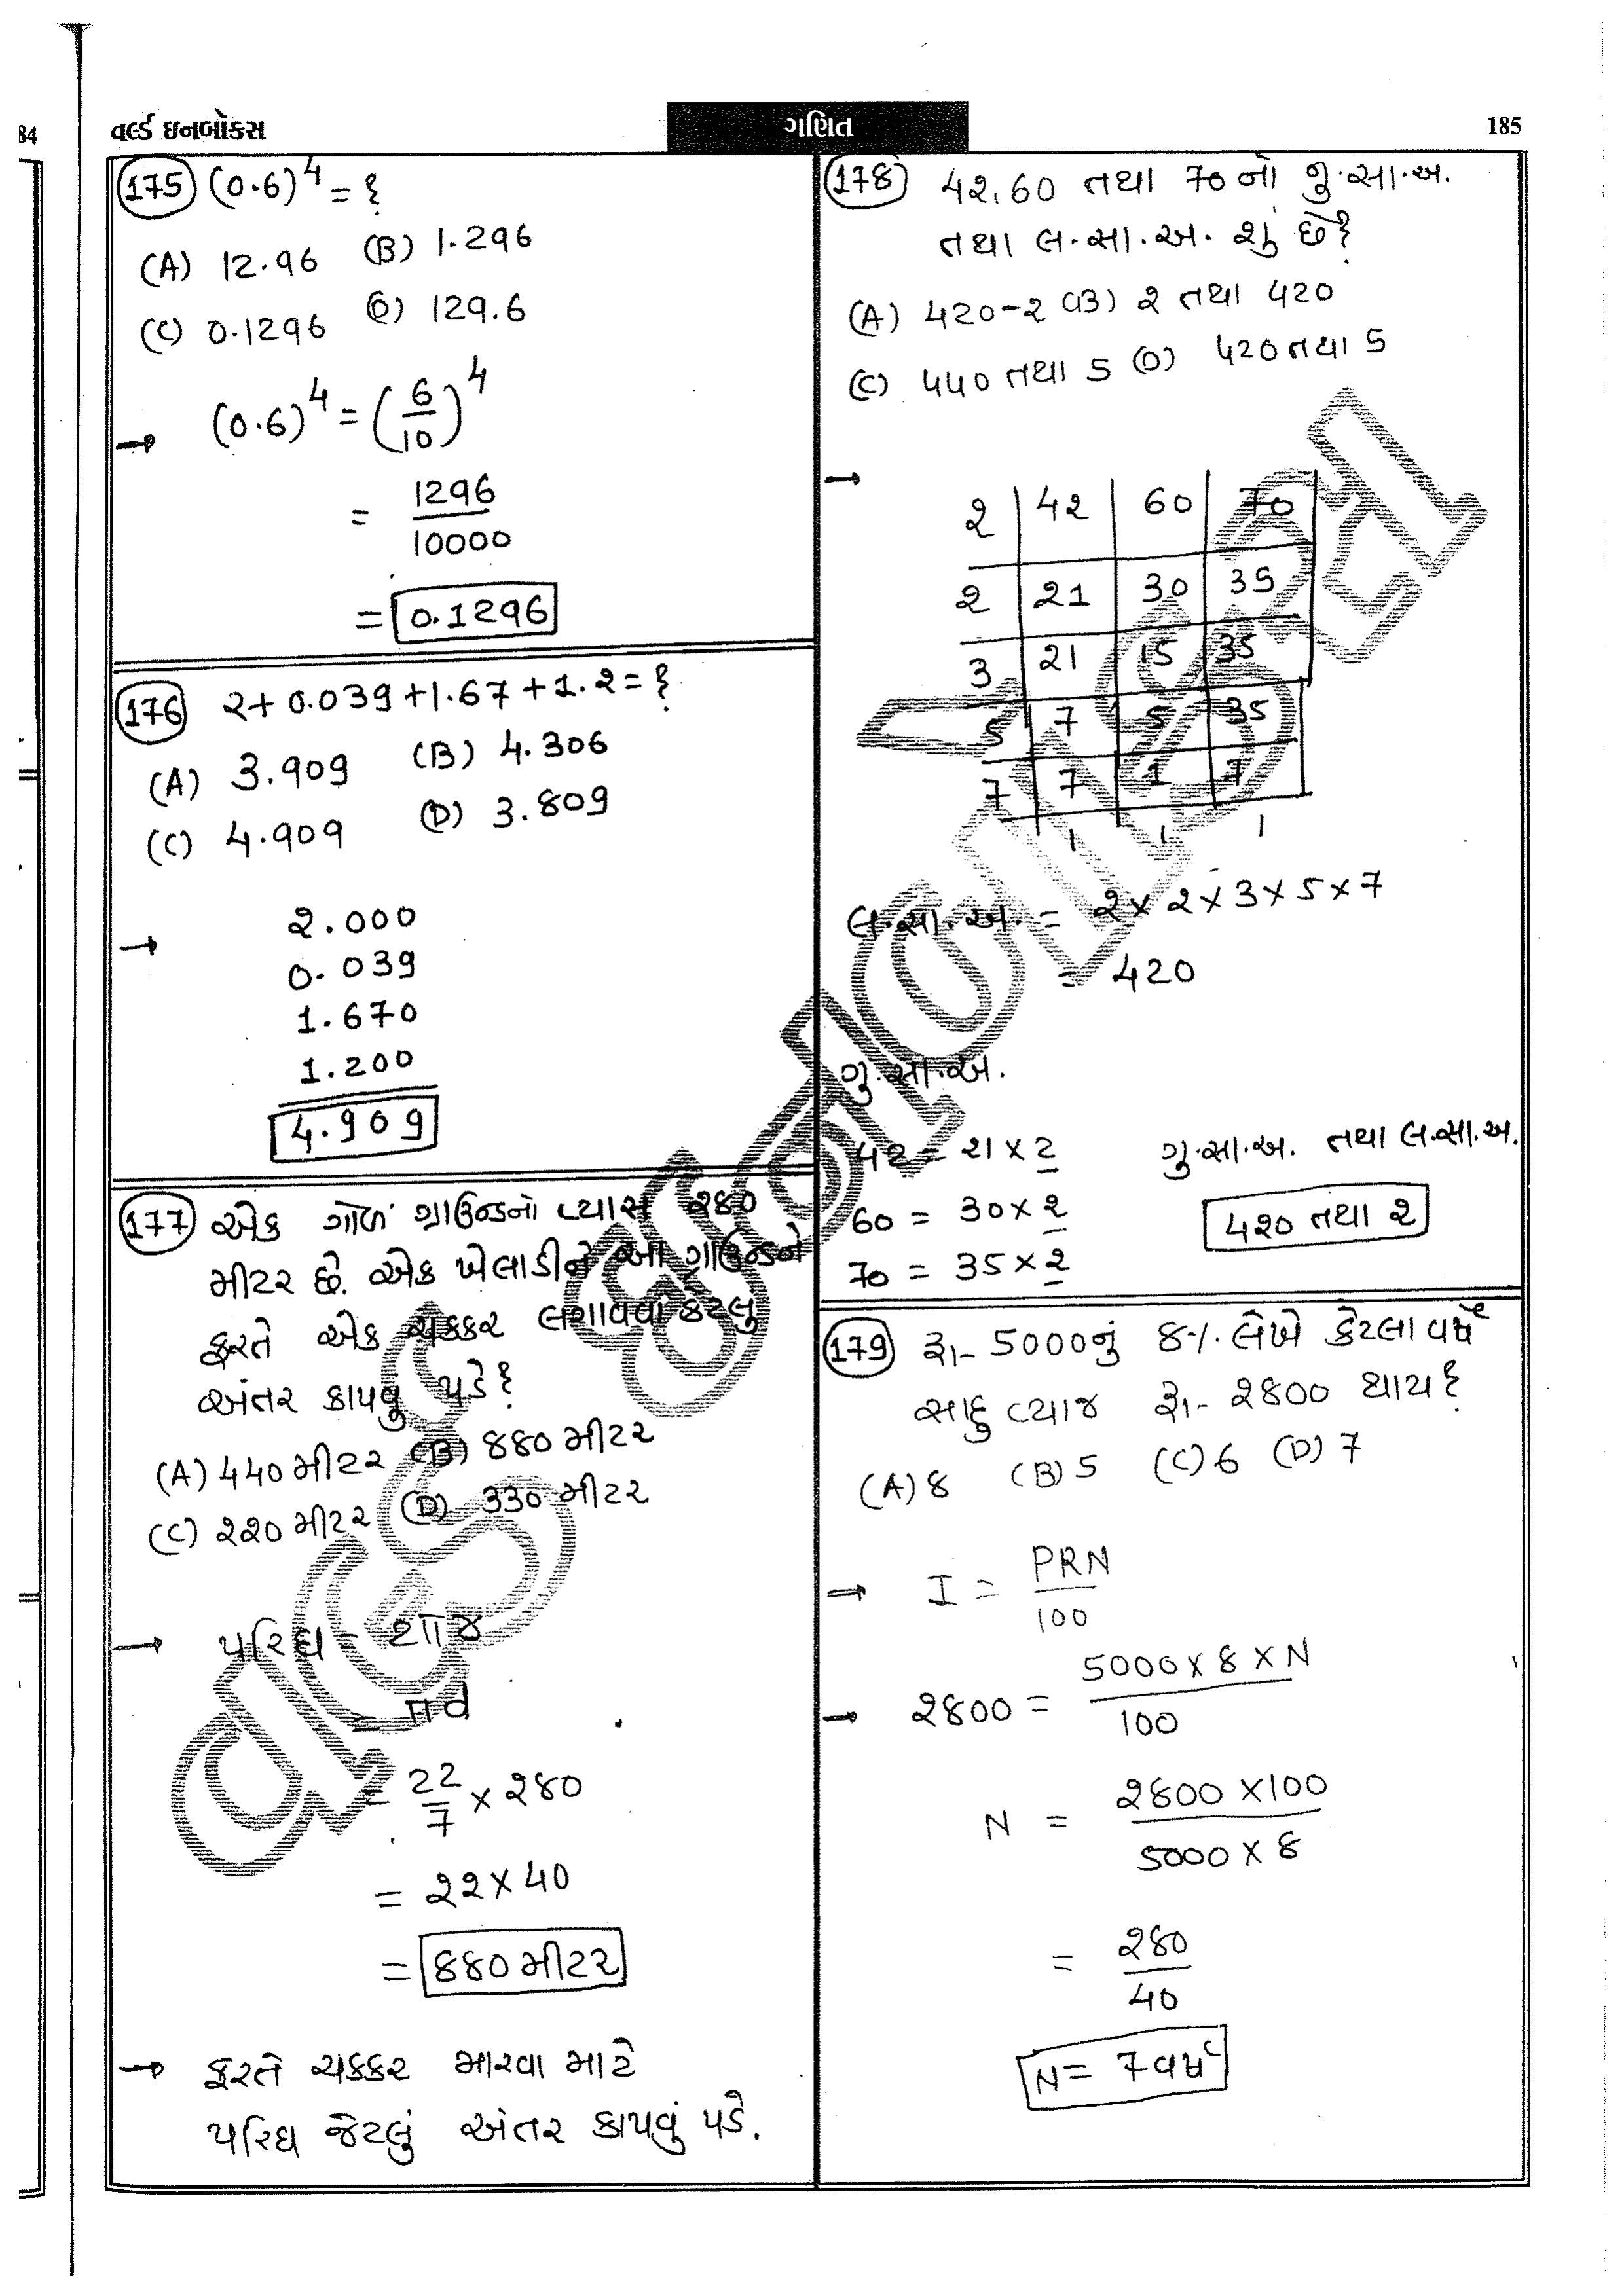 84
વર્લ્ડ ઇનબોક્સ
ગણિત
185
175 (0.6)⁴ = ?
(A) 12.96 (B) 1.296
(C) 0.1296 (D) 129.6
→ (0.6)⁴ = (6/10)⁴
= 1296/10000
= 0.1296
176 2+0.039+1.67+1.2=?
(A) 3.909 (B) 4.306
(C) 4.909 (D) 3.809
→ 2.000
0.039
1.670
1.200
4.909
177 એક ગોળ ગ્રાઉન્ડનો વ્યાસ ૨૮૦
મીટર છે. એક ખેલાડીને આ ગ્રાઉન્ડને
ફરતે એક ચક્કર લગાવવા કેટલુ
અંતર કાપવું પડે?
(A) 440 મીટર (B) 880 મીટર
(C) 220 મીટર (D) 330 મીટર
→ પરિઘ = 2πr
= πd
= 22/7 × 280
= 22 × 40
= 880 મીટર
→ ફરતે ચક્કર મારવા માટે
પરિઘ જેટલું અંતર કાપવું પડે.
178 42, 60 તથા 70નો ગુ.સા.અ.
તથા લ.સા.અ. શું છે?
(A) 420-2 (B) 2 તથા 420
(C) 440 તથા 5 (D) 420 તથા 5
→ 2 42 60 70
2 21 30 35
3 21 15 35
5 7 5 35
7 7 1 7
1 1 1
લ.સા.અ. = 2×2×3×5×7
= 420
ગુ.સા.અ.
42 = 21 × 2 ગુ.સા.અ. તથા લ.સા.અ.
60 = 30 × 2 420 તથા 2
70 = 35 × 2
179 રૂ- 5000નું 8% લેખે કેટલા વર્ષે
સાદુ વ્યાજ રૂ- 2800 થાય?
(A) 8 (B) 5 (C) 6 (D) 7
→ I = PRN/100
→ 2800 = 5000 × 8 × N/100
N = 2800 × 100/5000 × 8
= 280/40
N = 7 વર્ષ